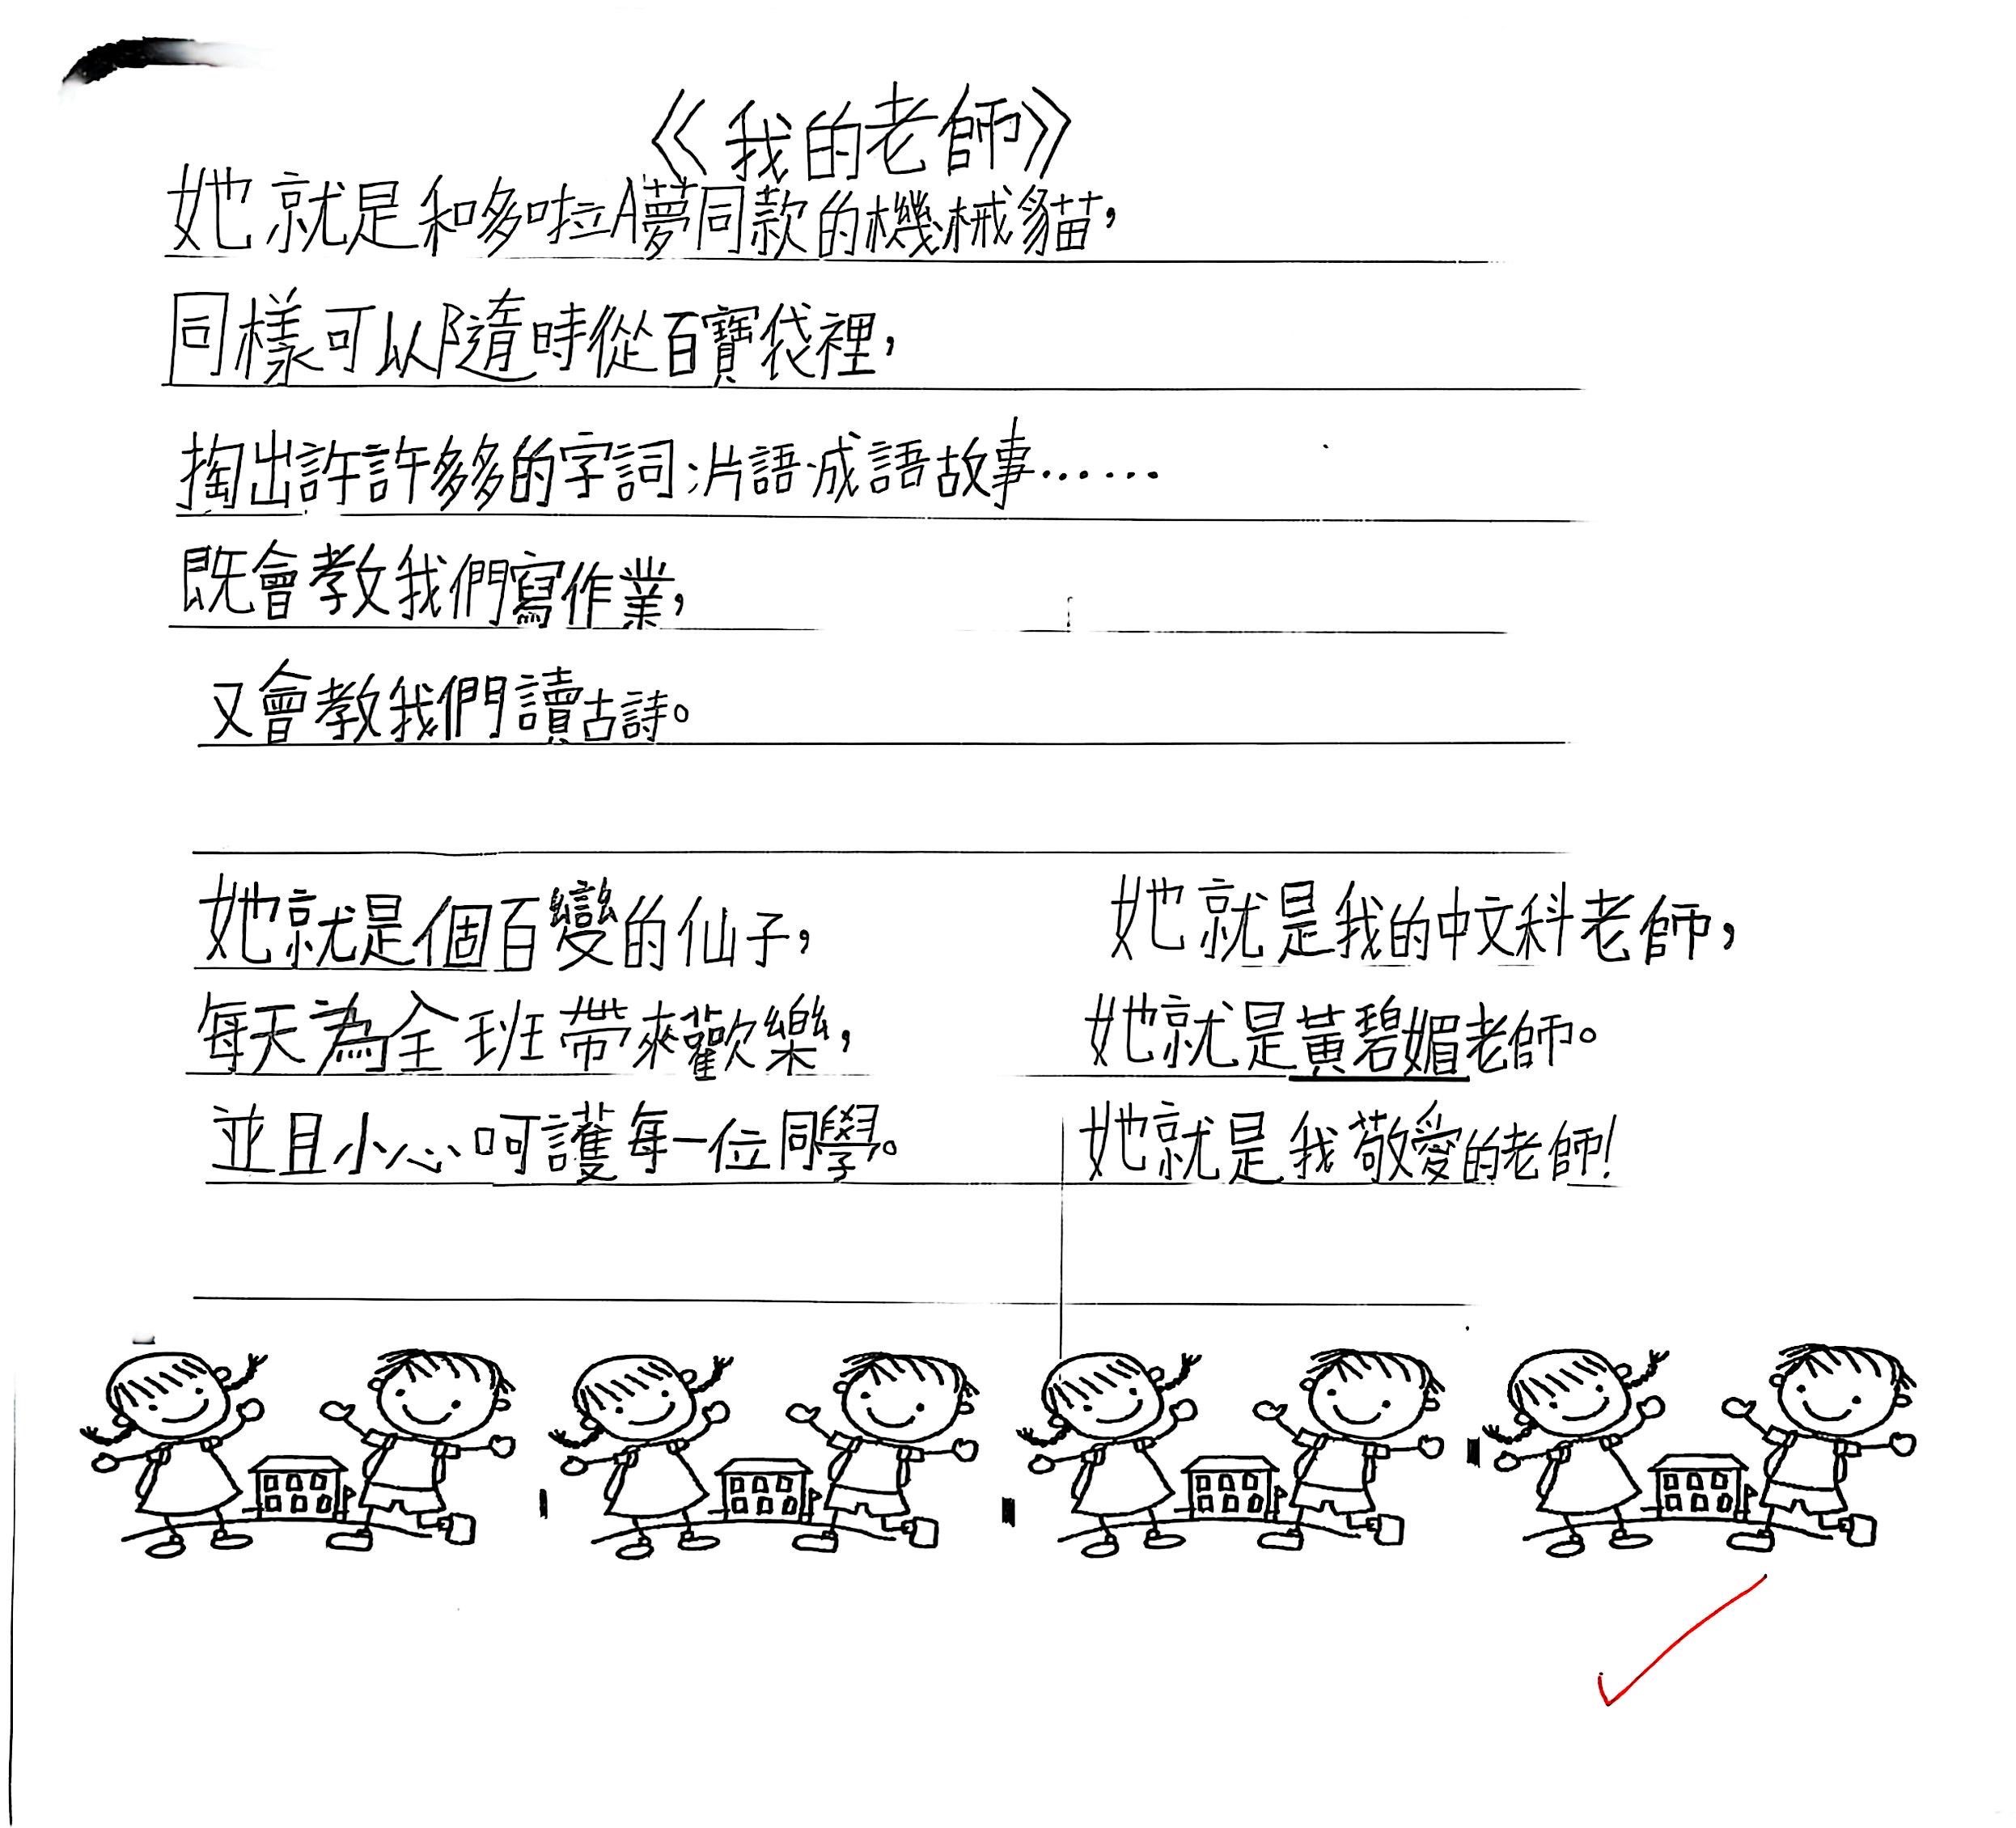 《我的老師》
她就是和多啦A夢同款的機械貓，
同樣可以隨時從百寶袋裡，
掏出許許多多的字詞、片語、成語故事……
既會教我們寫作業，
又會教我們讀古詩。
她就是個百變的仙子，
每天為全班帶來歡樂，
並且小心呵護每一位同學。
她就是我的中文科老師，
她就是黃碧媚老師。
她就是我敬愛的老師！